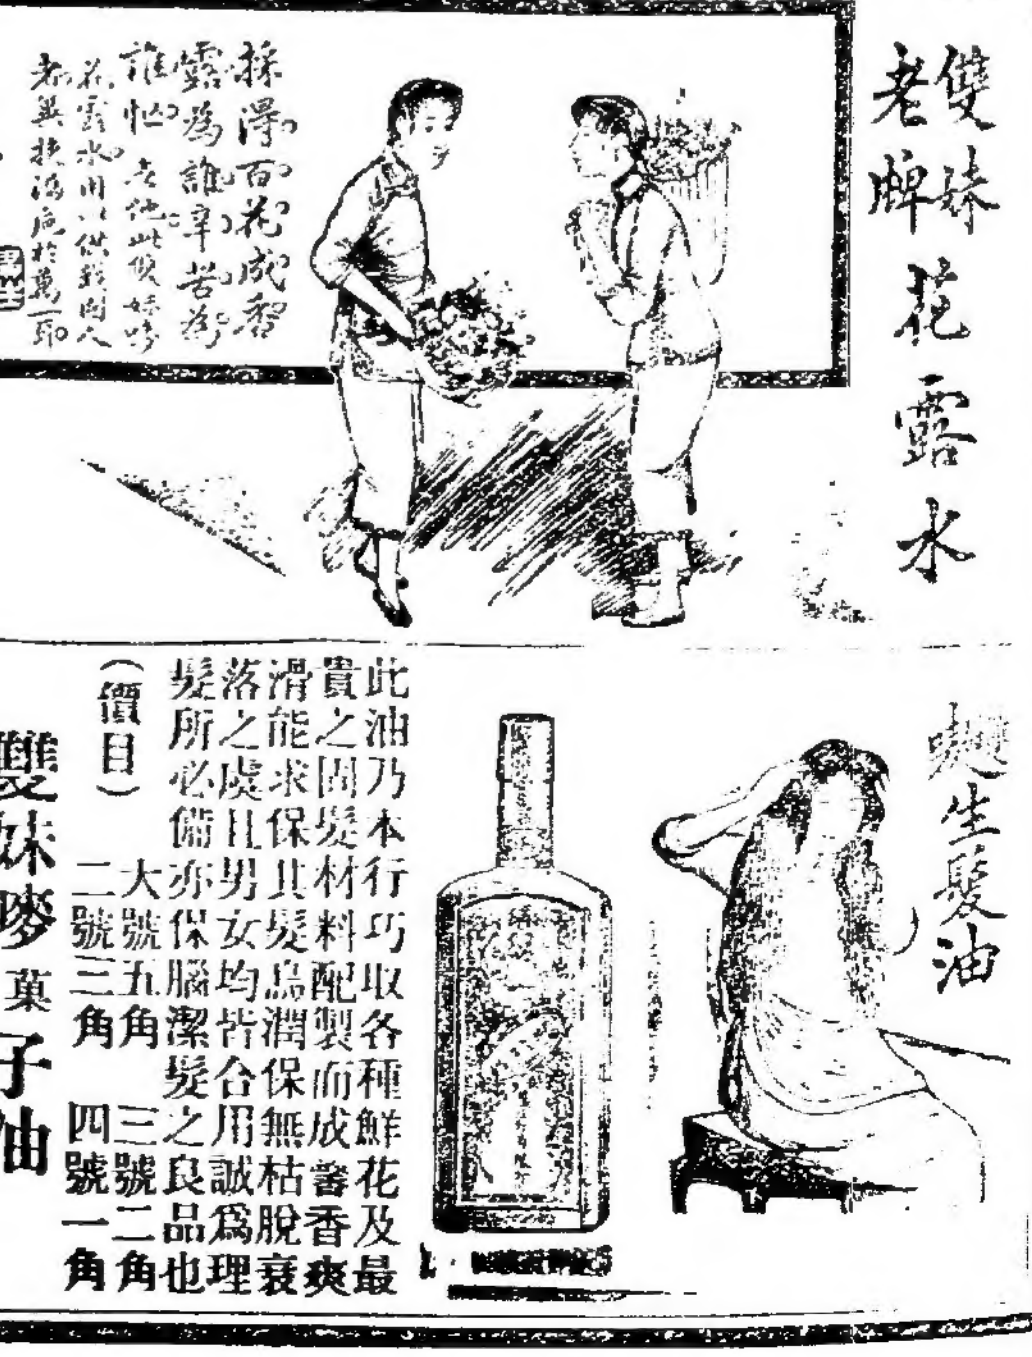 雙妹
老牌
花露水
採得百花成香
露為誰辛苦為
誰忙
花露水用以供我閨人
生髮油
此油乃本行巧取各種鮮花及最
貴之固髮材料配製而成馨香爽
滑能求保其髮烏潤保無枯脫衰
落之處且男女均皆合用誠爲理
髮所必備亦保腦潔髮之良品也
(價目)
大號五角 三號二角
二號三角 四號一角
雙妹嘜菓子油